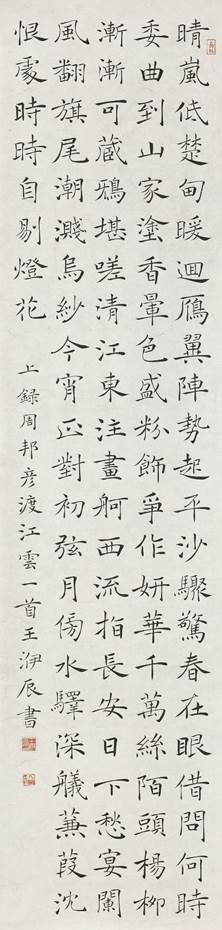 晴嵐低楚甸暖迴鴈翼陣勢起平沙驟驚春在眼借問何時
委曲到山家塗香暈色盛粉飾爭作妍華千萬絲陌頭楊柳
漸漸可蔵鴉堪嗟清江東注畫舸西流指長安日下愁宴闌
風翻旗尾潮濺烏紗今宵正對初弦月傍水驛深艤蒹葭沈
恨處時時自剔燈花
上録周邦彥渡江雲一首王洢辰書